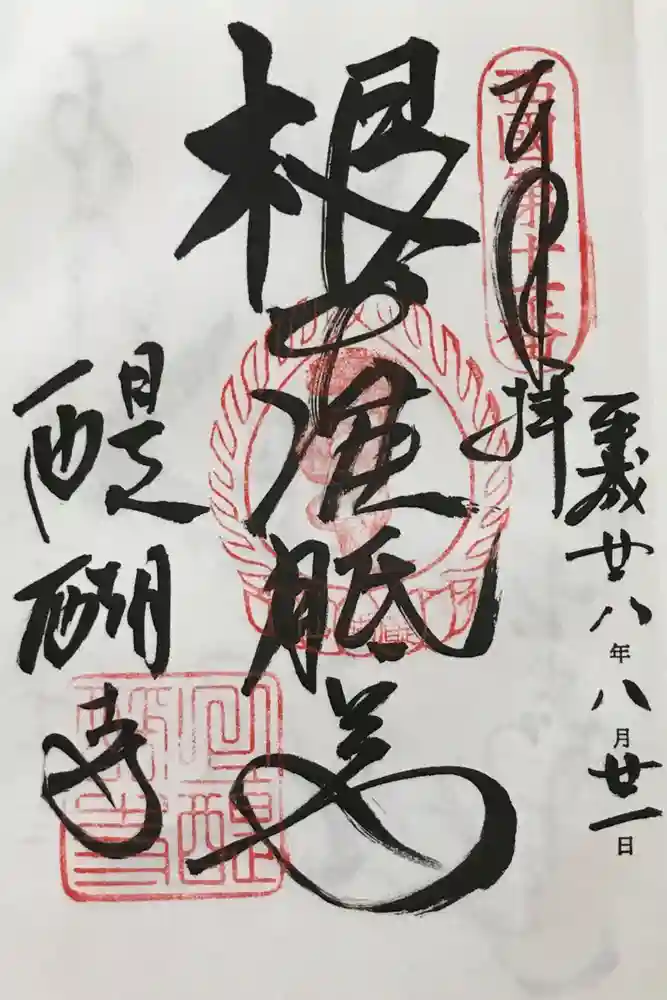 平成廿八年八月廿一日
西國第十一番
奉拝
根本准胝尊
醍醐寺